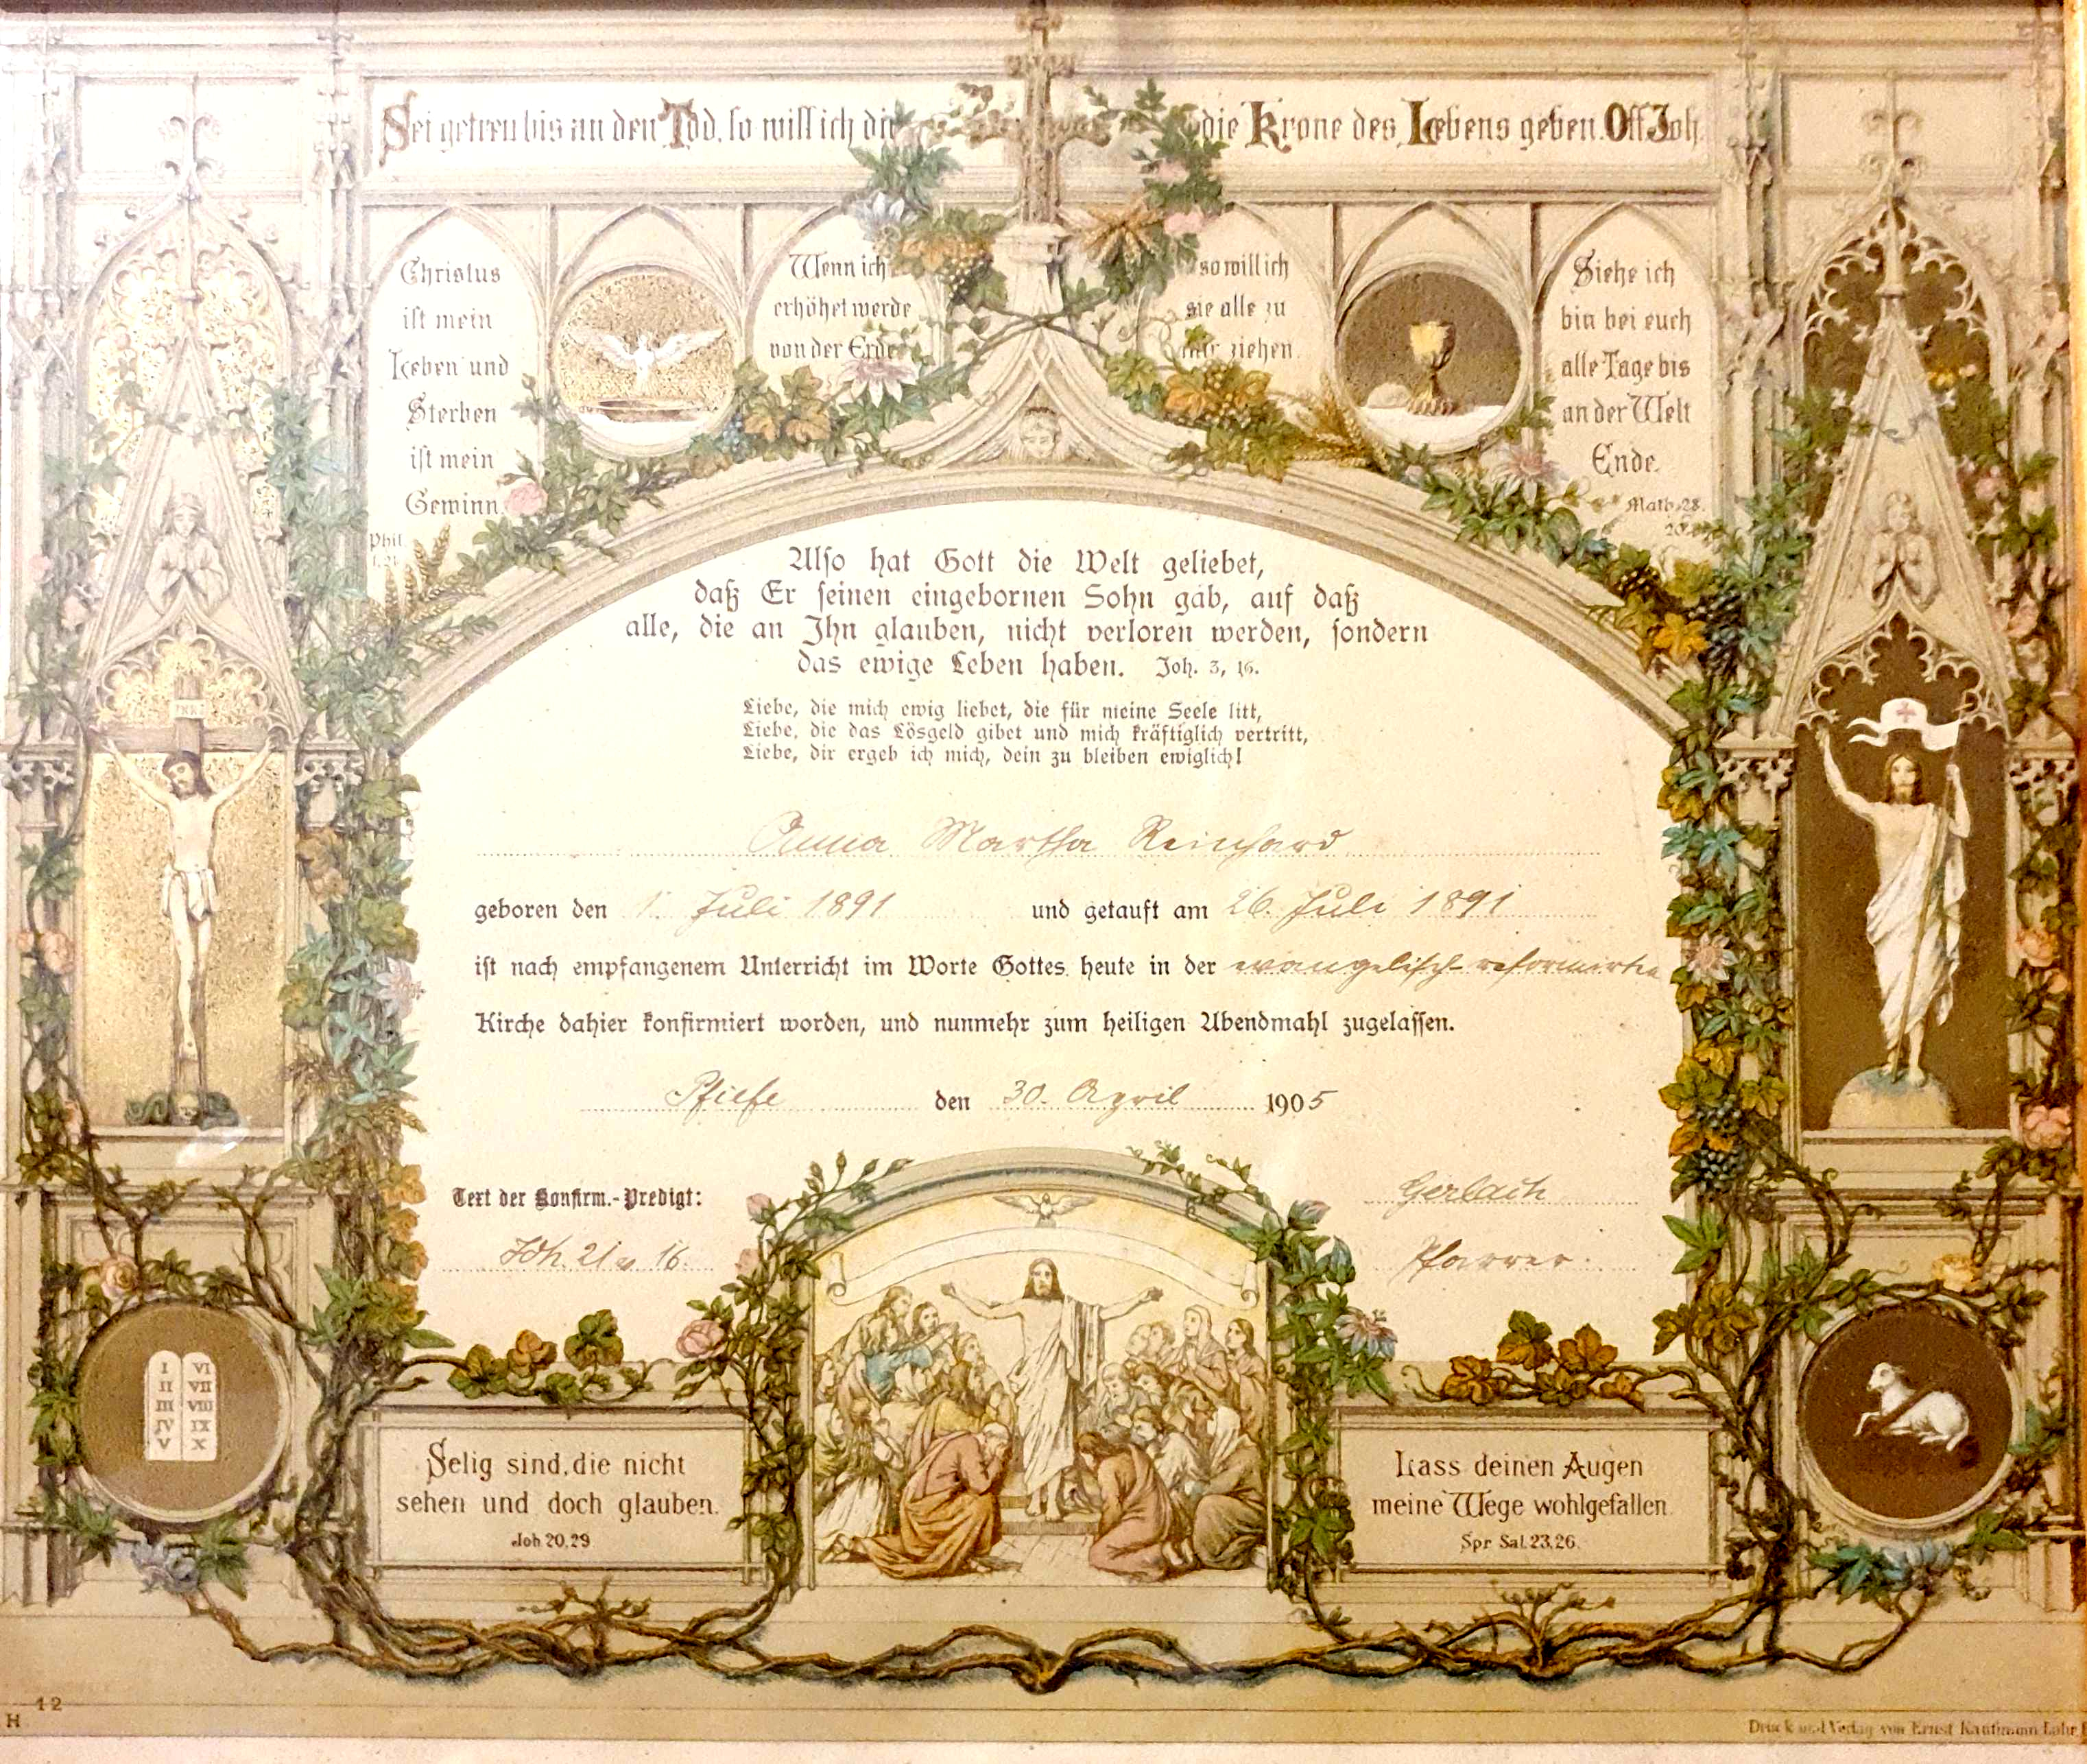 Sei getreu bis an den Tod, so will ich dir die Krone des Lebens geben. Off Joh.
Christus
ist mein
Leben und
Sterben
ist mein
Gewinn.
Phil.
1.21
Wenn ich
erhöhet werde
von der Erde
so will ich
sie alle zu
mir ziehen.
Siehe ich
bin bei euch
alle Tage bis
an der Welt
Ende.
Math. 28.
20.
Also hat Gott die Welt geliebet,
daß Er seinen eingebornen Sohn gab, auf daß
alle, die an Ihn glauben, nicht verloren werden, sondern
das ewige Leben haben. Joh. 3, 16.
Liebe, die mich ewig liebet, die für meine Seele litt,
Liebe, die das Lösgeld gibet und mich kräftiglich vertritt,
Liebe, dir ergeb ich mich, dein zu bleiben ewiglich!
INRI
Anna Martha Reinhard
geboren den 1. Juli 1891 und getauft am 26. Juli 1891
ist nach empfangenem Unterricht im Worte Gottes heute in der evangelisch-reformirten
Kirche dahier konfirmiert worden, und nunmehr zum heiligen Abendmahl zugelassen.
Pfiefe den 30. April 1905
Text der Konfirm.-Predigt:
Joh. 21 v. 16.
Gerlach
Pfarrer.
I VI
II VII
III VIII
IV IX
V X
Selig sind, die nicht
sehen und doch glauben.
Joh 20,29
Lass deinen Augen
meine Wege wohlgefallen.
Spr. Sal. 23,26.
12
H
Druck und Verlag von Ernst Kaufmann Lahr